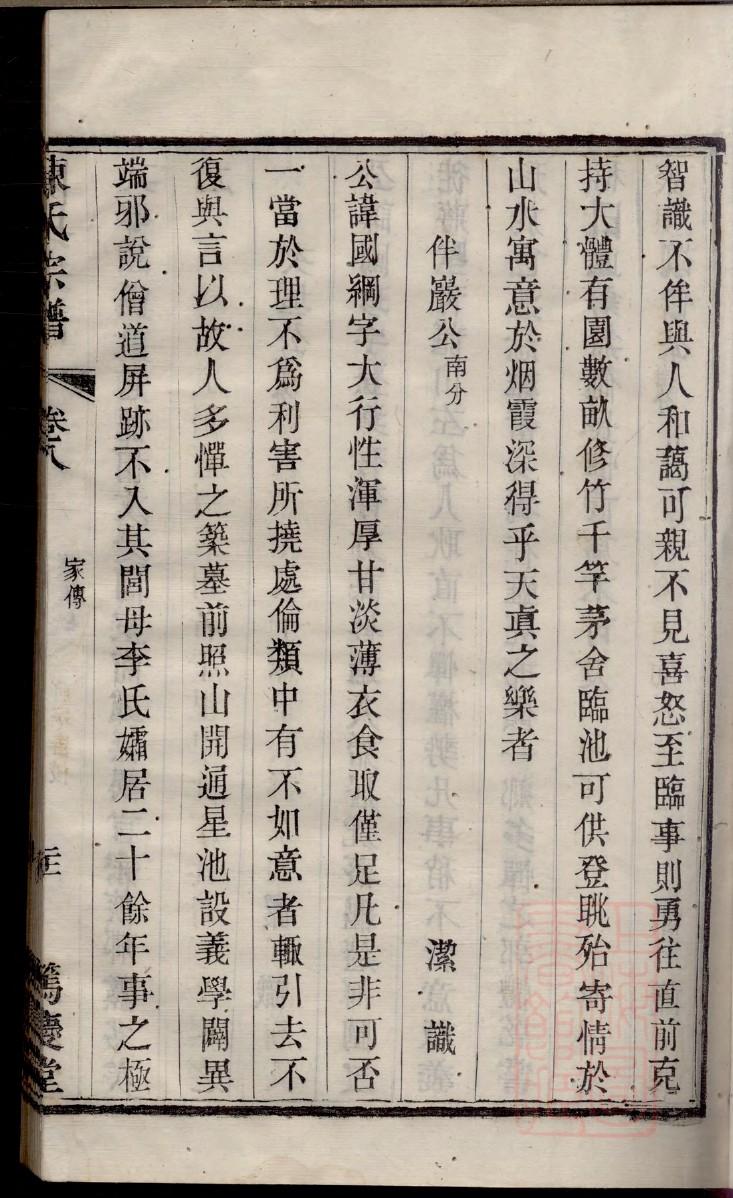 智識不侔與人和藹可親不見喜怒至臨事則勇往直前克
持大體有園數畝修竹千竿茅舍臨池可供登眺殆寄情於
山水寓意於烟霞深得乎天眞之樂者
伴巖公南分 潔識
公諱國綱字大行性渾厚甘淡薄衣食取僅足凡是非可否
一當於理不爲利害所撓處倫類中有不如意者輙引去不
復與言以故人多憚之築墓前照山開通星池設義學闢異
端邪說僧道屏跡不入其閭母李氏孀居二十餘年事之極
陳氏宗譜 卷八 家傳 篤慶堂